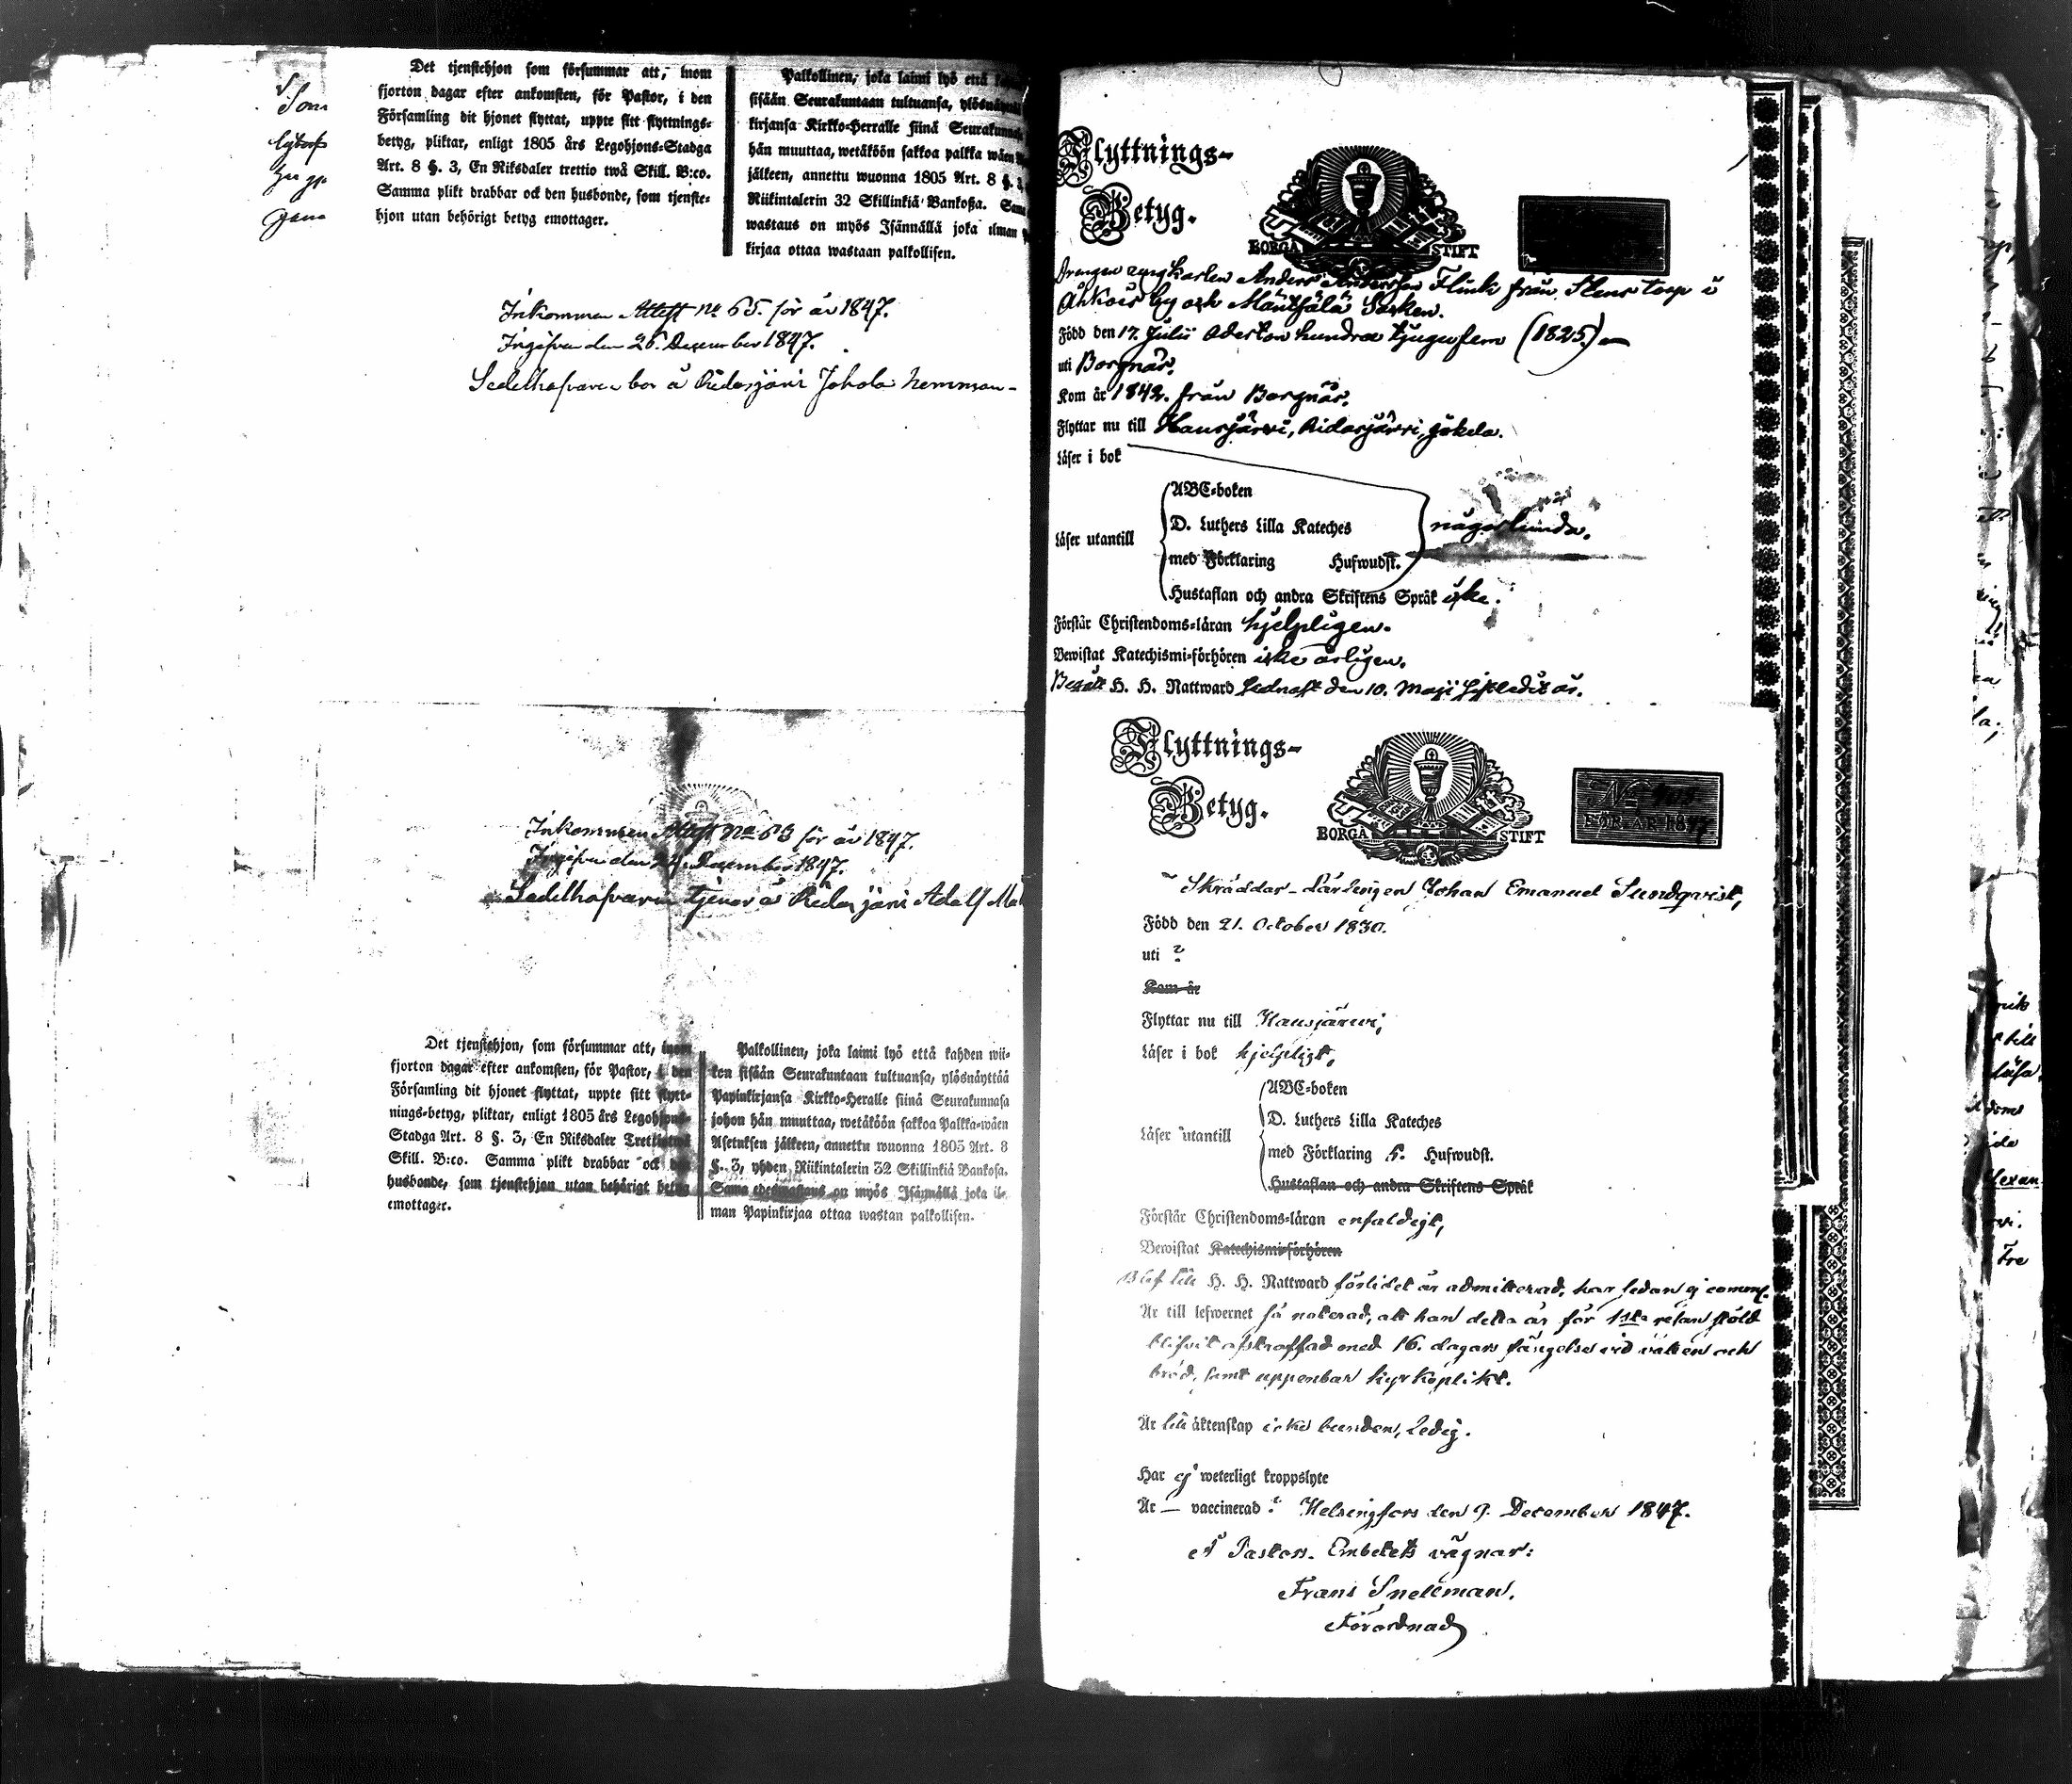 Som
Det tjenstehjon som försummar att, inom
fjorton dagar efter ankomsten, för Pastor, i den
Församling dit hjonet flyttat, uppte sitt flyttnings-
betyg, pliktar, enligt 1805 års Legohjons-Stadga
Art. 8 §. 3, En Riksdaler trettio twå Skill. B:co.
Samma plikt drabbar ock den husbonde, som tjenste-
hjon utan behörigt betyg emottager.
Palkollinen, joka laimi lyö että
sisään Seurakuntaan tultuansa,
kirjansa Kirkko-Herralle siinä
hän muuttaa, wetäköön sakkoa palkka wäen
jälkeen, annettu wuonna 1805 Art. 8 §. 3,
Riikintalerin 32 Skillinkiä Bankoßa.
wastaus on myös Isännällä joka ilman
kirjaa ottaa wastaan palkollisen.
Inkommen Attest No 65. för år 1847.
Ingifven den 26. December 1847.
Sedelhafvaren bor å Ridasjärvi Jokela hemman-
Inkommen Attest No 63 för år 1847.
Ingifven den December 1847.
Sedelhafvaren tjenar å Ridasjärvi Adolf
Det tjenstehjon, som försummar att, inom
fjorton dagar efter ankomsten, för Pastor, i den
Församling dit hjonet flyttat, uppte sitt flytt-
nings-betyg, pliktar, enligt 1805 års Legohjons-
Stadga Art. 8 §. 3, En Riksdaler Trettiotwå
Skill. B:co. Samma plikt drabbar ock den
husbonde, som tjenstehjon utan behörigt betyg
emottager.
Palkollinen, joka laimi lyö että kahden wii-
kon sisään Seurakuntaan tultuansa, ylösnäyttää
Papinkirjansa Kirkko-Heralle siinä Seurakunnasa
johon hän muuttaa, wetäköön sakkoa Palkka-wäen
Asetuksen jälkeen, annettu wuonna 1805 Art. 8
§. 3, yhden Riikintalerin 32 Skillinkiä Bankosa.
Sama on myös Isännällä joka il-
man Papinkirjaa ottaa wastan palkollisen.
Flyttnings-
Betyg.
BORGÅ STIFT
Drengen ynglkarlen Anders Andersson Flink från Stens torp i
by och Mäntsälä Socken.
Född den 17. Julii Aderton hundra tjugufem (1825.)
uti Borgnäs.
Kom år 1842. från Borgnäs.
Flyttar nu till Hausjärvi, Ridasjärvi, Jokela.
Läser i bok
Läser utantill
ABC-boken
D. Luthers Lilla Kateches
med Förklaring Hufwudst.
någorlunda.
Hustaflan och andra Skriftens Språk icke.
Förstår Christendoms-läran hjelpligen.
Bewistat Katechismi-förhören icke årligen.
Begått H. H. Nattward sednast den 10. Maji sistledit år.
Flyttnings-
Betyg.
BORGÅ STIFT
No
FÖR ÅR 1847
Skräddar-Lärlingen Johan Emanuel Sundqvist,
Född den 21. October 1830.
uti ?
Kom år
Flyttar nu till Hausjärvi,
Läser i bok hjelpligt,
Läser utantill
ABC-boken
D. Luthers Lilla Kateches
med Förklaring 5. Hufwudst.
Hustaflan och andra Skriftens Språk
Förstår Christendoms-läran enfaldigt,
Bewistat Katechismi-förhören
Blef till H. H. Nattward förlidet år admitterad, har sedan ej comm.
Är till lefwernet så noterad, att han detta år för 1sta resan stöld
blifvit afstraffad med 16. dagars fängelse vid vatten och
bröd, samt uppenbar kyrkoplikt.
Är till äktenskap icke bunden, Ledig.
Har ej weterligt kroppslyte
Är — vaccinerad ? Helsingfors den 9. December 1847.
å Pastors-Embetets vägnar:
Frans Snellman.
Förordnad